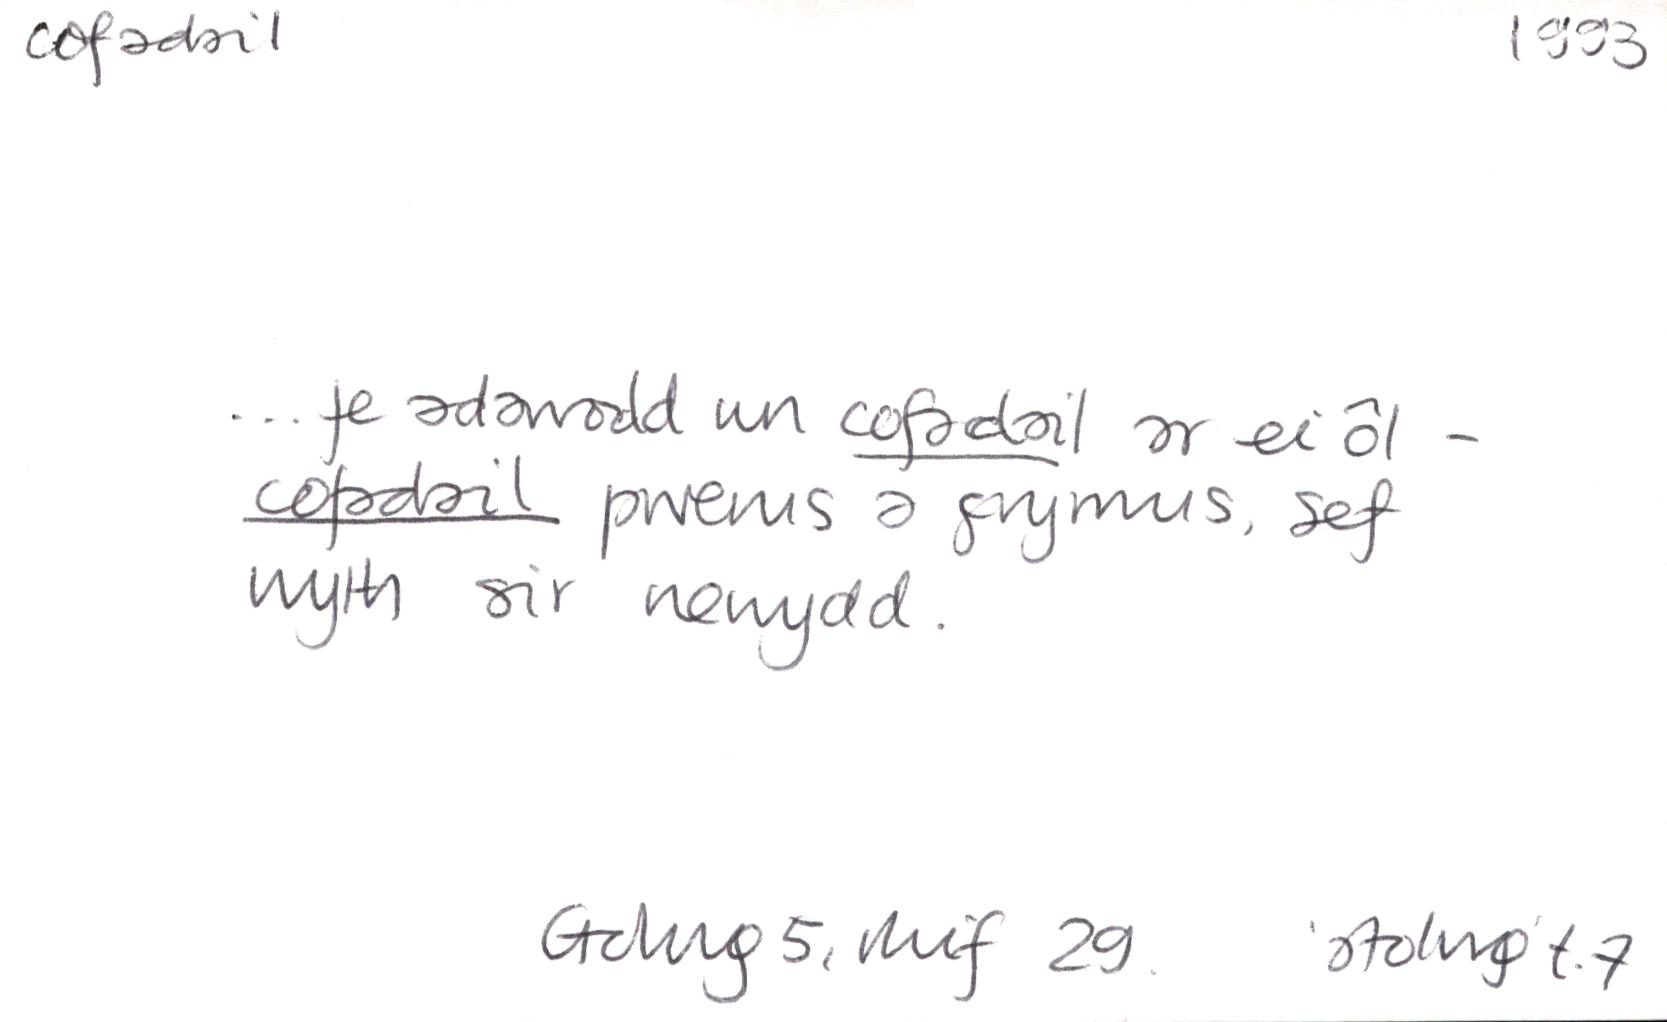 cofadail 1993
... fe adawodd un cofadail ar ei ôl -
cofadail pwerus a grymus, sef
wyth sir newydd.
Golwg 5, rhif 29. 'atolwg' t.7